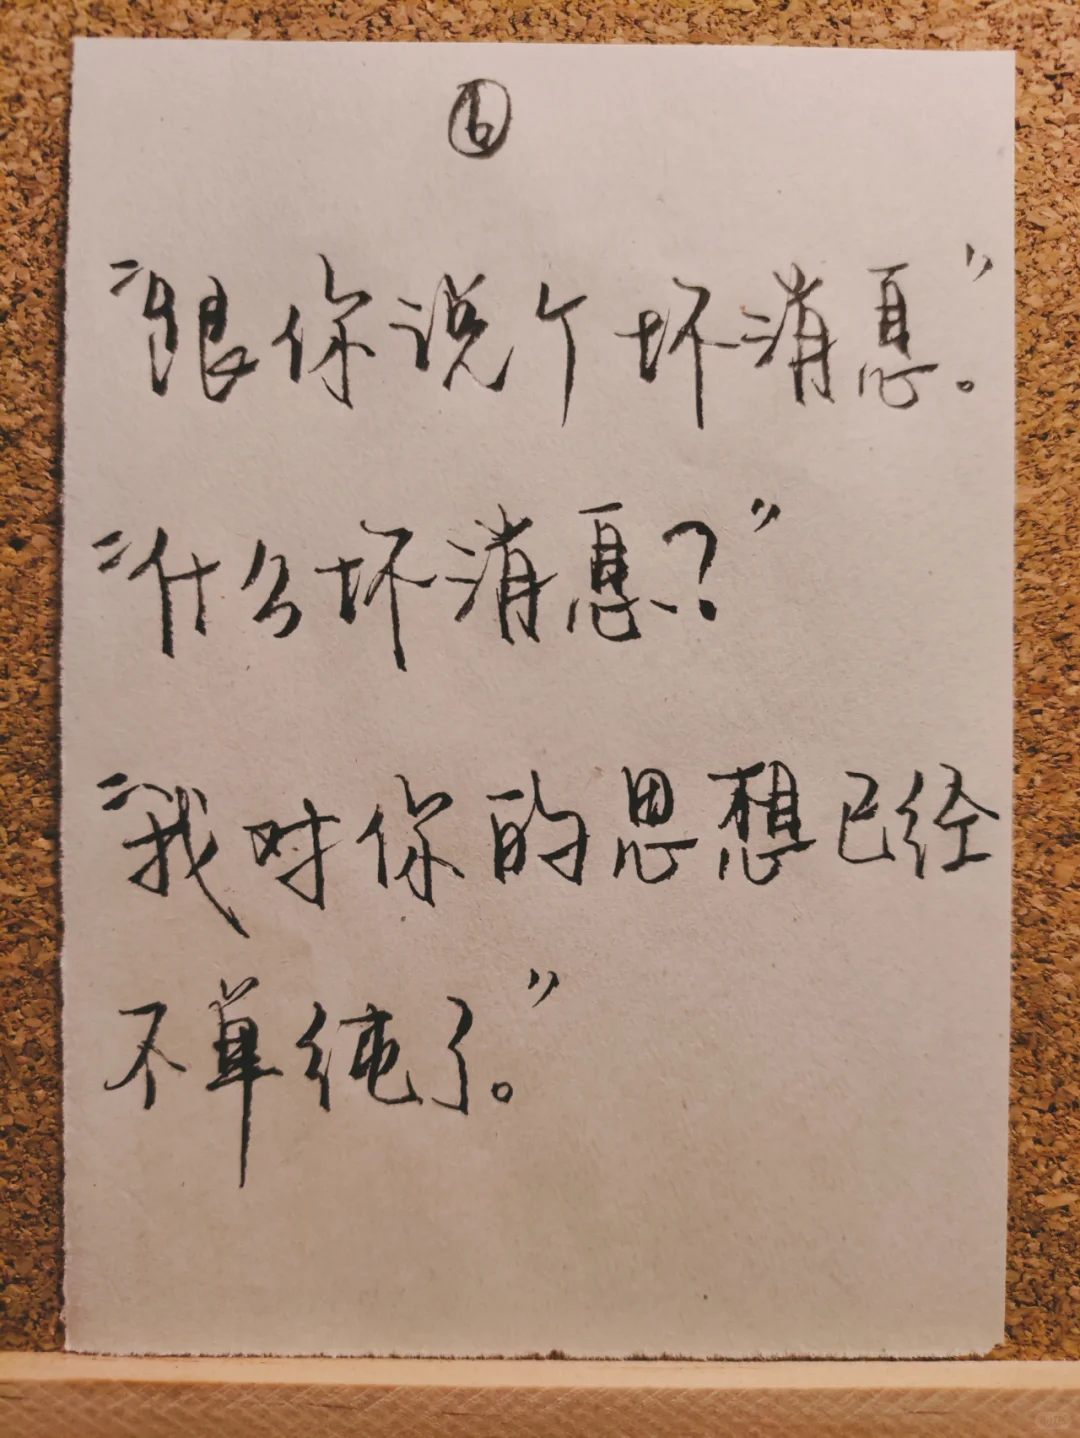 ⑥
“跟你说个坏消息。”
“什么坏消息？”
“我对你的思想已经
不单纯了。”